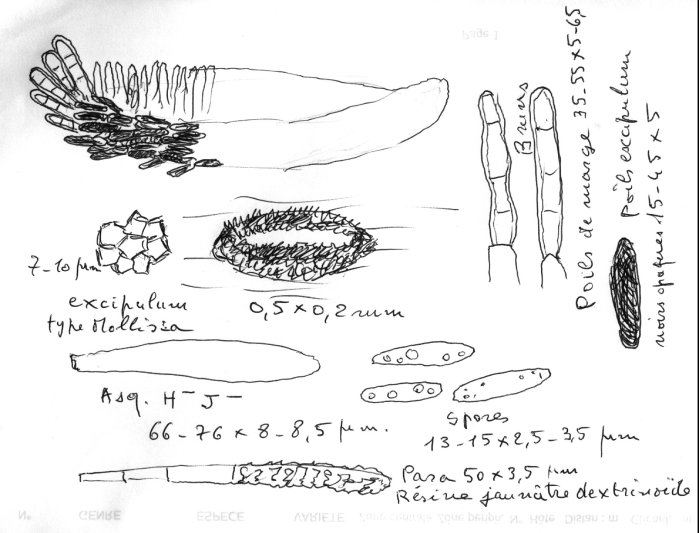 Page 1
Bruns
Poils de marge 35-55 x 5-6,5
Poils excipulum
noirs opaques 15-45 x 5
7-10 µm
excipulum
type Mollisia
0,5 x 0,2 mm
Asq. H⁻ J⁻
66-76 x 8-8,5 µm.
Spores
13-15 x 2,5-3,5 µm
Para 50 x 3,5 µm
Résine jaunâtre dextrinoïde
N° GENRE ESPECE VARIETE Zone centrale Zone periph. N° Hôte Distan : m